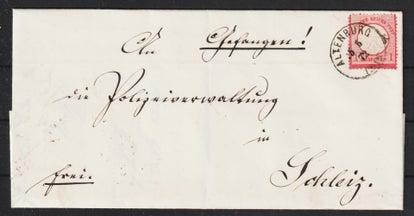 An Gefangen!
ALTENBURG
die Polizeiverwaltung
in
frei. Schleiz.